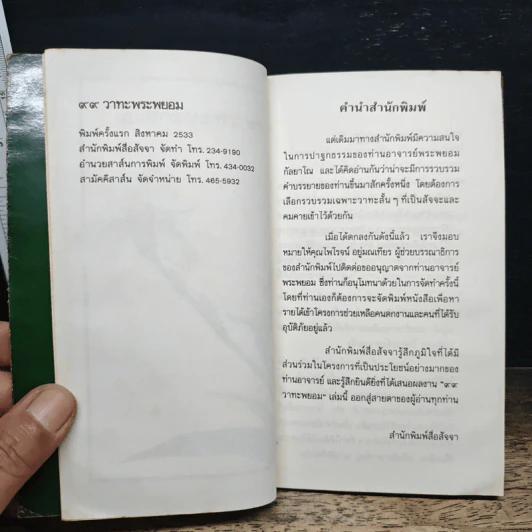 ๙๙ วาทะพระพยอม
พิมพ์ครั้งแรก สิงหาคม 2533
สำนักพิมพ์สื่อสัจจา จัดทำ โทร. 234-9190
อำนวยสาส์นการพิมพ์ จัดพิมพ์ โทร. 434-0032
สามัคคีสาส์น จัดจำหน่าย โทร. 465-5932
คำนำสำนักพิมพ์
แต่เดิมมาทางสำนักพิมพ์มีความสนใจ
ในการปาฐกธรรมของท่านอาจารย์พระพยอม
กัลยาโณ และได้คิดอ่านกันว่าน่าจะมีการรวบรวม
คำบรรยายของท่านขึ้นมาสักครั้งหนึ่ง โดยต้องการ
เลือกรวบรวมเฉพาะวาทะสั้น ๆ ที่เป็นสัจจะและ
คมคายเข้าไว้ด้วยกัน
เมื่อได้ตกลงกันดังนี้แล้ว เราจึงมอบ
หมายให้คุณไพโรจน์ อยู่มณเฑียร ผู้ช่วยบรรณาธิการ
ของสำนักพิมพ์ไปติดต่อขออนุญาตจากท่านอาจารย์
พระพยอม ซึ่งท่านก็อนุโมทนาด้วยในการจัดทำครั้งนี้
โดยที่ท่านเองก็ต้องการจะจัดพิมพ์หนังสือเพื่อหา
รายได้เข้าโครงการช่วยเหลือคนตกงานและคนที่ได้รับ
อุบัติภัยอยู่แล้ว
สำนักพิมพ์สื่อสัจจารู้สึกภูมิใจที่ได้มี
ส่วนร่วมในโครงการที่เป็นประโยชน์อย่างมากของ
ท่านอาจารย์ และรู้สึกยินดียิ่งที่ได้เสนอผลงาน "๙๙
วาทะพยอม" เล่มนี้ ออกสู่สายตาของผู้อ่านทุกท่าน
สำนักพิมพ์สื่อสัจจา